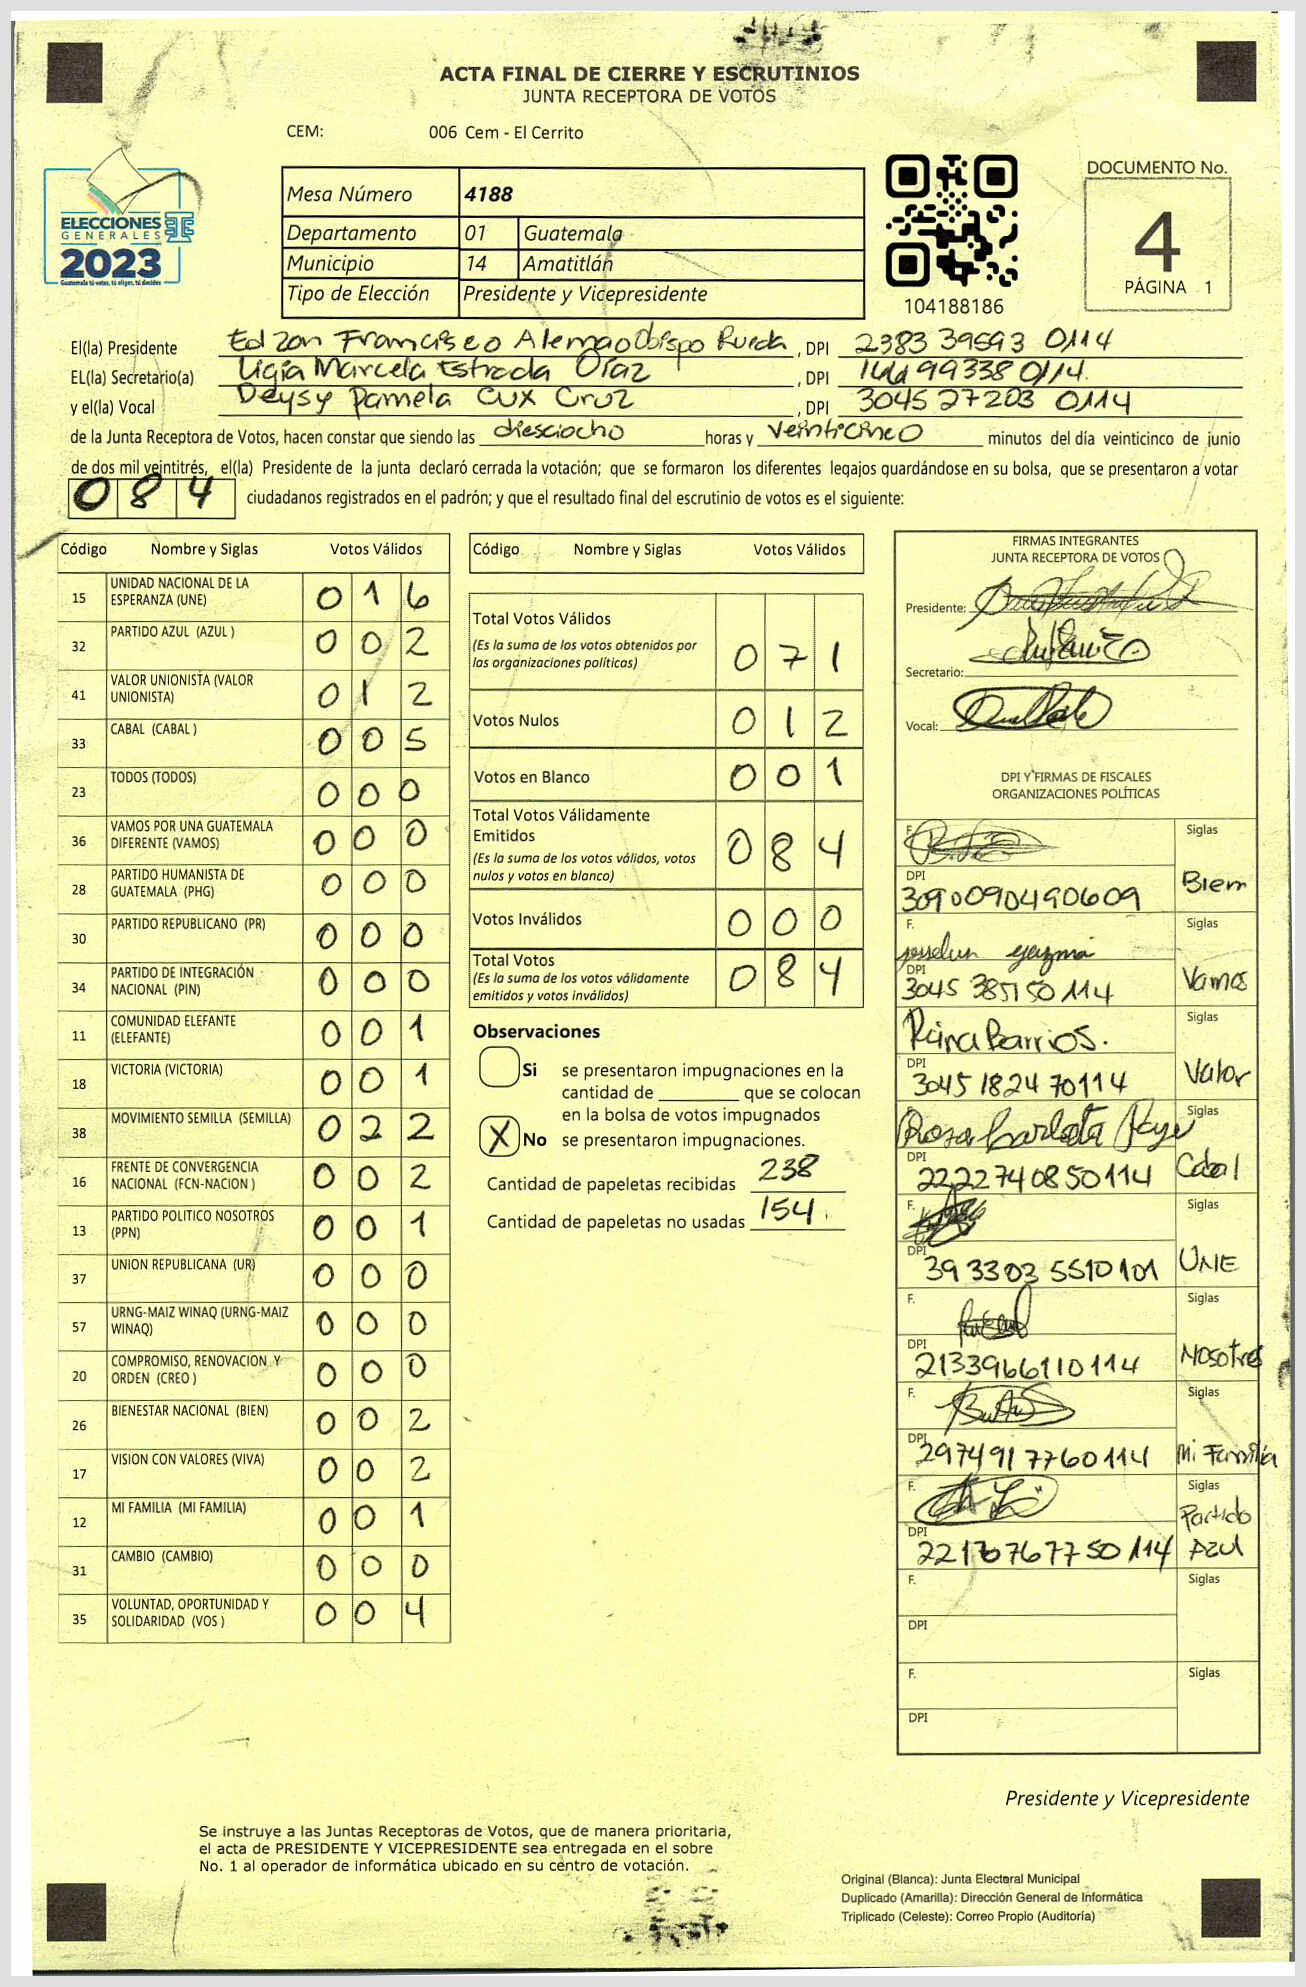 ACTA FINAL DE CIERRE Y ESCRUTINIOS
JUNTA RECEPTORA DE VOTOS
CEM: 006 Cem - El Cerrito
ELECCIONES
GENERALES
2023
Guatemala tú votas, tú eliges, tú decides
Mesa Número 4188
Departamento 01 Guatemala
Municipio 14 Amatitlán
Tipo de Elección Presidente y Vicepresidente
104188186
DOCUMENTO No.
4
PÁGINA 1
El(la) Presidente Edzon Francisco Alemao Obispo Rueda, DPI 2383 39593 0114
EL(la) Secretario(a) Ligia Marcela Estrada Díaz, DPI 99338 0114
y el(la) Vocal Deysy Pamela Cux Cruz, DPI 3045 27203 0114
de la Junta Receptora de Votos, hacen constar que siendo las diesciocho horas y veinticinco minutos del día veinticinco de junio
de dos mil veintitrés, el(la) Presidente de la junta declaró cerrada la votación; que se formaron los diferentes legajos guardándose en su bolsa, que se presentaron a votar
084 ciudadanos registrados en el padrón; y que el resultado final del escrutinio de votos es el siguiente:
Código Nombre y Siglas Votos Válidos
15 UNIDAD NACIONAL DE LA ESPERANZA (UNE) 016
32 PARTIDO AZUL (AZUL ) 002
41 VALOR UNIONISTA (VALOR UNIONISTA) 012
33 CABAL (CABAL ) 005
23 TODOS (TODOS) 000
36 VAMOS POR UNA GUATEMALA DIFERENTE (VAMOS) 000
28 PARTIDO HUMANISTA DE GUATEMALA (PHG) 000
30 PARTIDO REPUBLICANO (PR) 000
34 PARTIDO DE INTEGRACIÓN NACIONAL (PIN) 000
11 COMUNIDAD ELEFANTE (ELEFANTE) 001
18 VICTORIA (VICTORIA) 001
38 MOVIMIENTO SEMILLA (SEMILLA) 022
16 FRENTE DE CONVERGENCIA NACIONAL (FCN-NACION ) 002
13 PARTIDO POLITICO NOSOTROS (PPN) 001
37 UNION REPUBLICANA (UR) 000
57 URNG-MAIZ WINAQ (URNG-MAIZ WINAQ) 000
20 COMPROMISO, RENOVACION Y ORDEN (CREO ) 000
26 BIENESTAR NACIONAL (BIEN) 002
17 VISION CON VALORES (VIVA) 002
12 MI FAMILIA (MI FAMILIA) 001
31 CAMBIO (CAMBIO) 000
35 VOLUNTAD, OPORTUNIDAD Y SOLIDARIDAD (VOS ) 004
Código Nombre y Siglas Votos Válidos
Total Votos Válidos
(Es la suma de los votos obtenidos por
las organizaciones políticas) 071
Votos Nulos 012
Votos en Blanco 001
Total Votos Válidamente
Emitidos
(Es la suma de los votos válidos, votos
nulos y votos en blanco) 084
Votos Inválidos 000
Total Votos
(Es la suma de los votos válidamente
emitidos y votos inválidos) 084
Observaciones
Si se presentaron impugnaciones en la
cantidad de ________ que se colocan
en la bolsa de votos impugnados
X No se presentaron impugnaciones.
Cantidad de papeletas recibidas 238
Cantidad de papeletas no usadas 154
FIRMAS INTEGRANTES
JUNTA RECEPTORA DE VOTOS
Presidente:
Secretario:
Vocal:
DPI Y FIRMAS DE FISCALES
ORGANIZACIONES POLÍTICAS
F. Siglas
DPI 3090090490609 Biem
F. Siglas
DPI 3045 385150114 Vamos
F. Reina Barrios. Siglas
DPI 3045 1824 70114 Valor
Rosa Carlota Siglas
DPI 2222740850114 Cabal
F. Siglas
DPI 393303 5510101 UNE
F. Siglas
DPI 2133966110114 Nosotros
F. Siglas
DPI 2974917760114 Mi Familia
F. Siglas
DPI 50114 Partido Azul
F. Siglas
DPI
F. Siglas
DPI
Presidente y Vicepresidente
Se instruye a las Juntas Receptoras de Votos, que de manera prioritaria,
el acta de PRESIDENTE Y VICEPRESIDENTE sea entregada en el sobre
No. 1 al operador de informática ubicado en su centro de votación.
Original (Blanca): Junta Electoral Municipal
Duplicado (Amarilla): Dirección General de Informática
Triplicado (Celeste): Correo Propio (Auditoría)